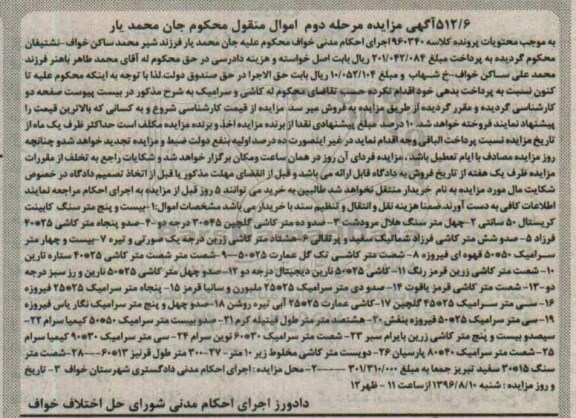 ۵۱۲/۶آگهی مزایده مرحله دوم اموال منقول محکوم جان محمد یار
به موجب محتویات پرونده کلاسه ۹۶۰۳۴۰اجرای احکام مدنی خواف محکوم علیه جان محمد یار فرزند شیر محمد ساکن خواف-نشتیفان
محکوم گردیده به پرداخت مبلغ ۲۰۱/۰۴۲/۰۸۴ ریال بابت اصل خواسته و هزینه دادرسی در حق محکوم له آقای محمد طاهر باهنر فرزند
محمد علی ساکن خواف-خ شهاب و مبلغ ۱۰/۰۵۲/۱۰۴ ریال بابت حق الاجرا در حق صندوق دولت.لذا با توجه به اینکه محکوم علیه تا
کنون نسبت به پرداخت بدهی خود اقدام نکرده حسب تقاضای محکوم له کاشی و سرامیک به شرح مذکور در بیست پیوست صفحه دو
کارشناسی گردیده و مقرر گردیده از طریق مزایده به فروش میر سد مزایده از قیمت کارشناسی شروع و به کسانی که بالاترین قیمت را
پیشنهاد نمایند فروخته خواهد شد. ۱۰ درصد مبلغ پیشنهادی نقدا از برنده مزایده اخذ و برنده مزایده مکلف است حداکثر ظرف یک ماه از
تاریخ مزایده نسبت پرداخت الباقی وجه اقدام نماید در غیر اینصورت ده درصد اولیه بنفع دولت ضبط و مزایده تجدید خواهد شدو چنانچه
روز مزایده مصادف با ایام تعطیل باشد. مزایده فردای آن روز در همان ساعت ومکان برگزار خواهد شد و شکایات راجع به تخلف از مقررات
مزایده ظرف یک هفته از تاریخ فروش به دادگاه قابل ارائه می باشد و قبل از انقضای مهلت مذکور یا قبل از اتخاذ تصمیم دادگاه در خصوص
شکایت مال مورد مزایده به نام خریدار منتقل نخواهد شد طالبین به خرید می توانند ۵ روز قبل از مزایده به اجرای احکام مراجعه نمایند
اطلاعات کافی به دست آورند.ضمنا هزینه نقل و انتقال و تنظیم سند با خریدار می باشد مشخصات اموال:۱-بیست و پنج متر سنگ کابینت
کریستال ۵۰ سانتی ۲-چهل متر سنگ هلال مرودشت ۳-صدوده متر کاشی گلچین ۴۵*۳۰ درجه دو ۴-صدو پنجاه متر کاشی ۲۵*۴۰
فرزاد ۵-صدو شش متر کاشی فرزاد شمالیک سفید و پرتقالی ۶-هشتاد متر کاشی زرین درجه یک صورتی و تیره ۷-بیست و چهار متر
سرامیک ۵۰*۵۰ قهوه ای فیروزه ۸-شصت متر کاشی تک گل عمارت ۲۵*۵۰ ۹-شصت متر شصت متر کاشی ۲۵*۴۰ ستاره نارین
۱۰-شصت متر کاشی زرین قرمز رنگ ۱۱-کاشی ۲۵*۵۰ نارین دیجیتال درجه دو ۱۲-صدو چهل متر کاشی ۲۵*۵۰ نارین و رز سبز درجه
دو ۱۳-شصت متر کاشی قرمز یاقوت ۱۴-صدو دی متر سرامیک ۲۵*۲۵ ملیورن و سانیا قرمز ۱۵-پنجاه متر سرامیک ۲۵*۲۵ فیروزه
۱۶-سی متر سرامیک ۲۵*۴۵ گلچین ۱۷-کاشی عمارت ۲۵*۲۵ آبی تیره روشن ۱۸-صدو چهل و پنج متر سرامیک نگار یاس فیروزه
۱۹-سی متر سرامیک ۲۵*۵۰ فیروزه بنفش ۲۰-هشتصد متر متر طول قیتیله کرم ۲۱-صدو بیست متر سرامیک ۵۰*۵۰ کیمیا سرام ۲۲-
سیصدو بیست و پنج متر کاشی زرین بایرام سبز ۲۳-شصت متر سرامیک ۳۰*۶۰ نوین سرام ۲۴-سی متر سرامیک ۳۰*۹۰ کیمیا سرام
۲۵-شصت متر سرامیک ۴۰*۸۰ پارسیان ۲۶-دویست متر کاشی مخلوط زیر ۱۰متر ۲۷-۳۰۰ متر طول قرنیز ۱۳*۶۰ ۲۸-شصت متر
سنگ ۱۵*۳۰ سفید تبریز جمعا به مبلغ ۳۰۱/۳۱۰/۰۰۰ ۲-محل مزایده: اجرای احکام مدنی دادگستری شهرستان خواف ۳-تاریخ
و روز مزایده: شنبه ۱۳۹۶/۸/۱۰ از ساعت ۱۱-ظهر۱۲
دادورز اجرای احکام مدنی شورای حل اختلاف خواف